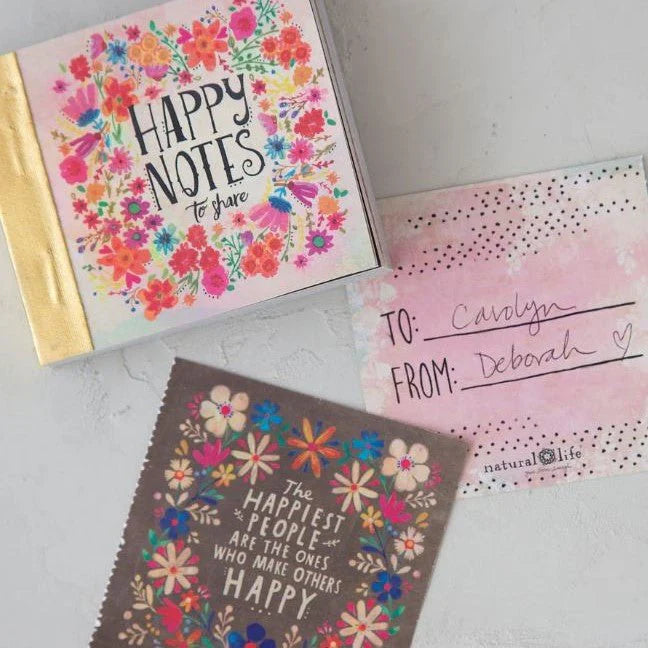 HAPPY
NOTES
to share
TO: Carolyn
FROM: Deborah
natural life
The
HAPPIEST
PEOPLE
ARE THE ONES
WHO MAKE OTHERS
HAPPY